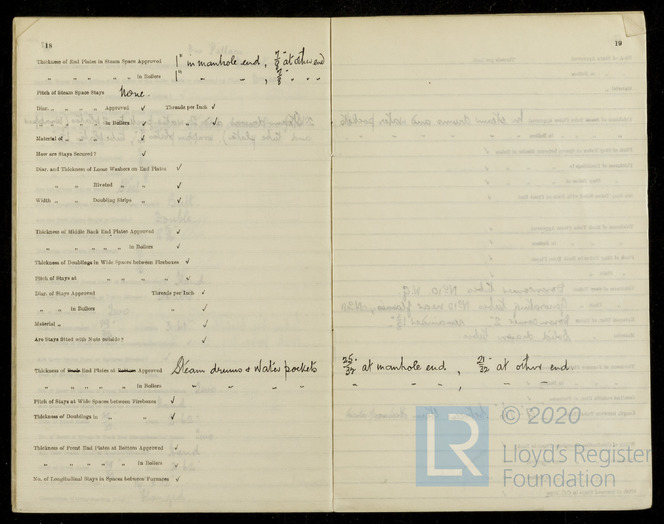 18
Thickness of End Plates in Steam Space Approved 1" in manhole end, 7/8" at other end
" " " " " in Boilers 1" " " " , 7/8 " " "
Pitch of Steam Space Stays None.
Diar. " " " " Approved ✓ Threads per Inch ✓
" " " " in Boilers ✓ " ✓
Material of " " " ✓
How are Stays Secured? ✓
Diar. and Thickness of Loose Washers on End Plates ✓
" " Riveted " " ✓
Width " " Doubling Strips " ✓
Thickness of Middle Back End Plates Approved ✓
" " " " " in Boilers ✓
Thickness of Doublings in Wide Spaces between Fireboxes ✓
Pitch of Stays at " " " " ✓
Diar. of Stays Approved Threads per Inch ✓
" " in Boilers " ✓
Material " ✓
Are Stays fitted with Nuts outside? ✓
Thickness of End Plates at Approved Steam drums & Water pockets
" " " " " in Boilers " " " "
Pitch of Stays at Wide Spaces between Fireboxes ✓
Thickness of Doublings in " " ✓
Thickness of Front End Plates at Bottom Approved ✓
" " " " " in Boilers ✓
No. of Longitudinal Stays in Spaces between Furnaces ✓
19
25/32" at manhole end, 21/32" at other end
" " " " , " " "
© 2020
LR
Lloyd's Register
Foundation